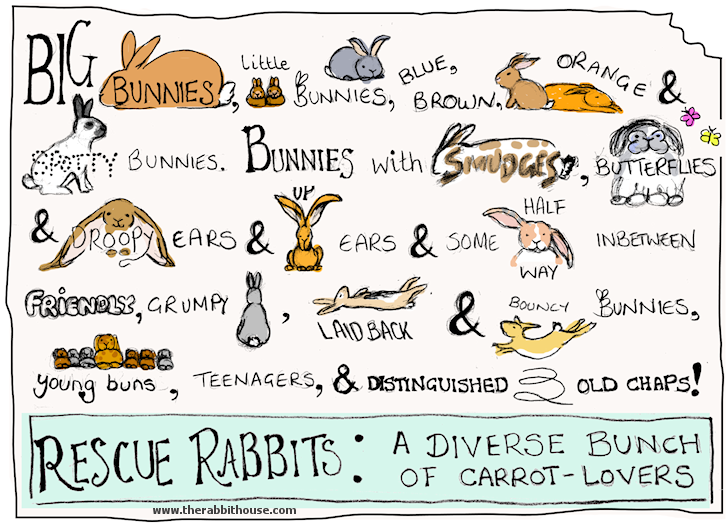 BIG BUNNIES, little BUNNIES, BLUE, BROWN, ORANGE &
SPOTTY BUNNIES. BUNNIES with SMUDGES, BUTTERFLIES
& DROOPY EARS & UP EARS & SOME HALF WAY INBETWEEN
FRIENDLY, GRUMPY, LAID BACK & BOUNCY BUNNIES,
young buns, TEENAGERS, & DISTINGUISHED OLD CHAPS!
RESCUE RABBITS: A DIVERSE BUNCH
OF CARROT-LOVERS
www.therabbithouse.com